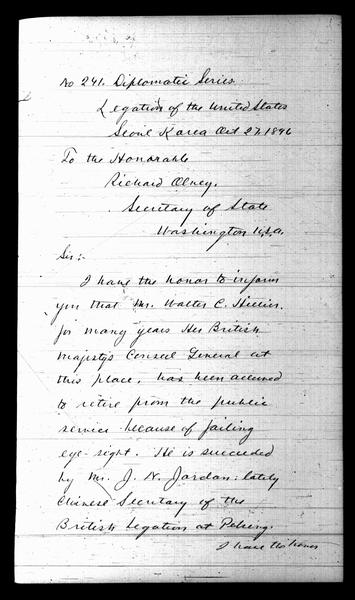 No 241. Diplomatic Series.
Legation of the United States
Seoul Korea Oct 27. 1896
To the Honorable
Richard Olney.
Secretary of State
Washington U.S.A.
Sir:-
I have the honor to inform
you that Mr. Walter C. Hillier.
for many years Her British
Majesty's Consul General at
this place, has been
to retire from the public
service because of failing
eye-sight. He is succeeded
by Mr. J. N. Jordan: lately
Chinese Secretary of the
British Legation at Peking.
I have the honor